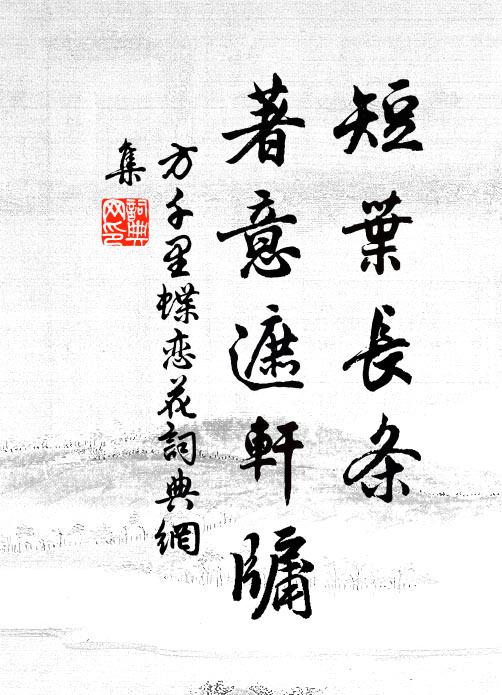 短葉長条
著意遮軒牖
方千里蝶恋花詞典網
集
詞典
网印